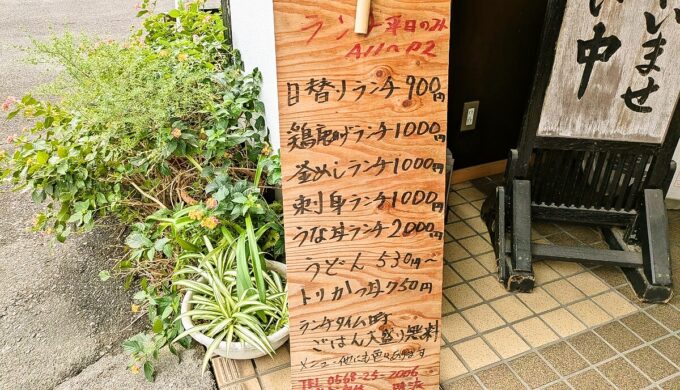 ランチ平日のみ
A11〜P2
日替りランチ 900円
鶏唐揚げランチ 1000円
釜めしランチ 1000円
刺身ランチ 1000円
うな丼ランチ 2000円
うどん 530円〜
トリカツ丼 750円
ランチタイム時
ごはん大盛り無料
メニュー他にも
TEL 0568-25-2006
いませ
中